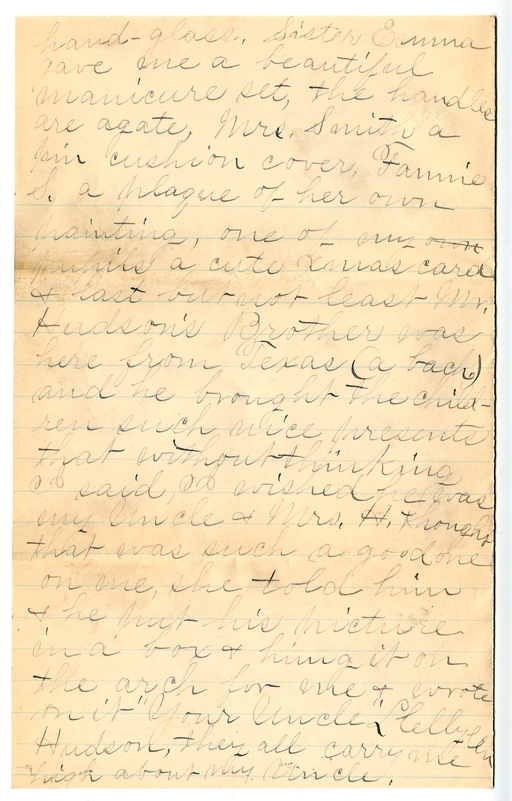 hand-glass. Sister Emma
gave me a beautiful
manicure set, the handles
are agate. Mrs. Smith a
pin cushion cover, Fannie
S. a plaque of her own
painting, one of my own
pupils a cute Xmas card
& last but not least Mr.
Hudson's Brother was
here from Texas (a bach)
and he brought the child-
ren such nice presents
that without thinking
I said, I wished he was
my Uncle & Mrs. H. thought
that was such a good one
on me, she told him
& he put his picture
in a box & hung it on
the arch for me & wrote
on it "Your Uncle,"
Hudson, they all carry me
high about my Uncle.